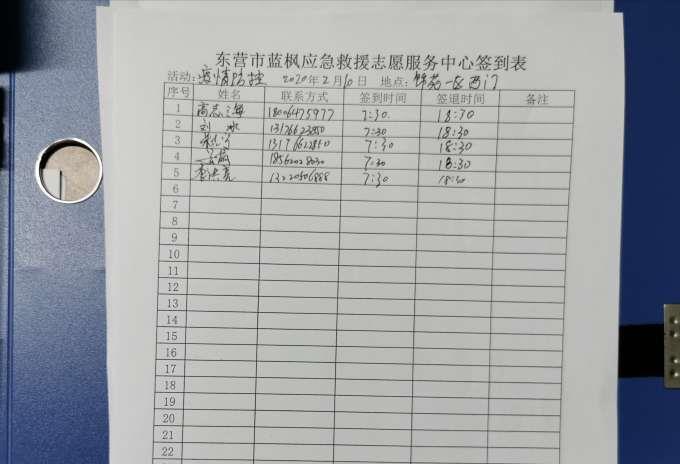 东营市蓝枫应急救援志愿服务中心签到表
活动:疫情防控 2020年2月10日 地点:锦苑一区西门
序号 姓名 联系方式 签到时间 签退时间 备注
1 高志海 18006475977 7:30 18:30
2 刘冰 7:30 18:30
3 7:30 18:30
4 7:30 18:30
5 李洪亮 13220506888 7:30 18:30
6
7
8
9
10
11
12
13
14
15
16
17
18
19
20
21
22